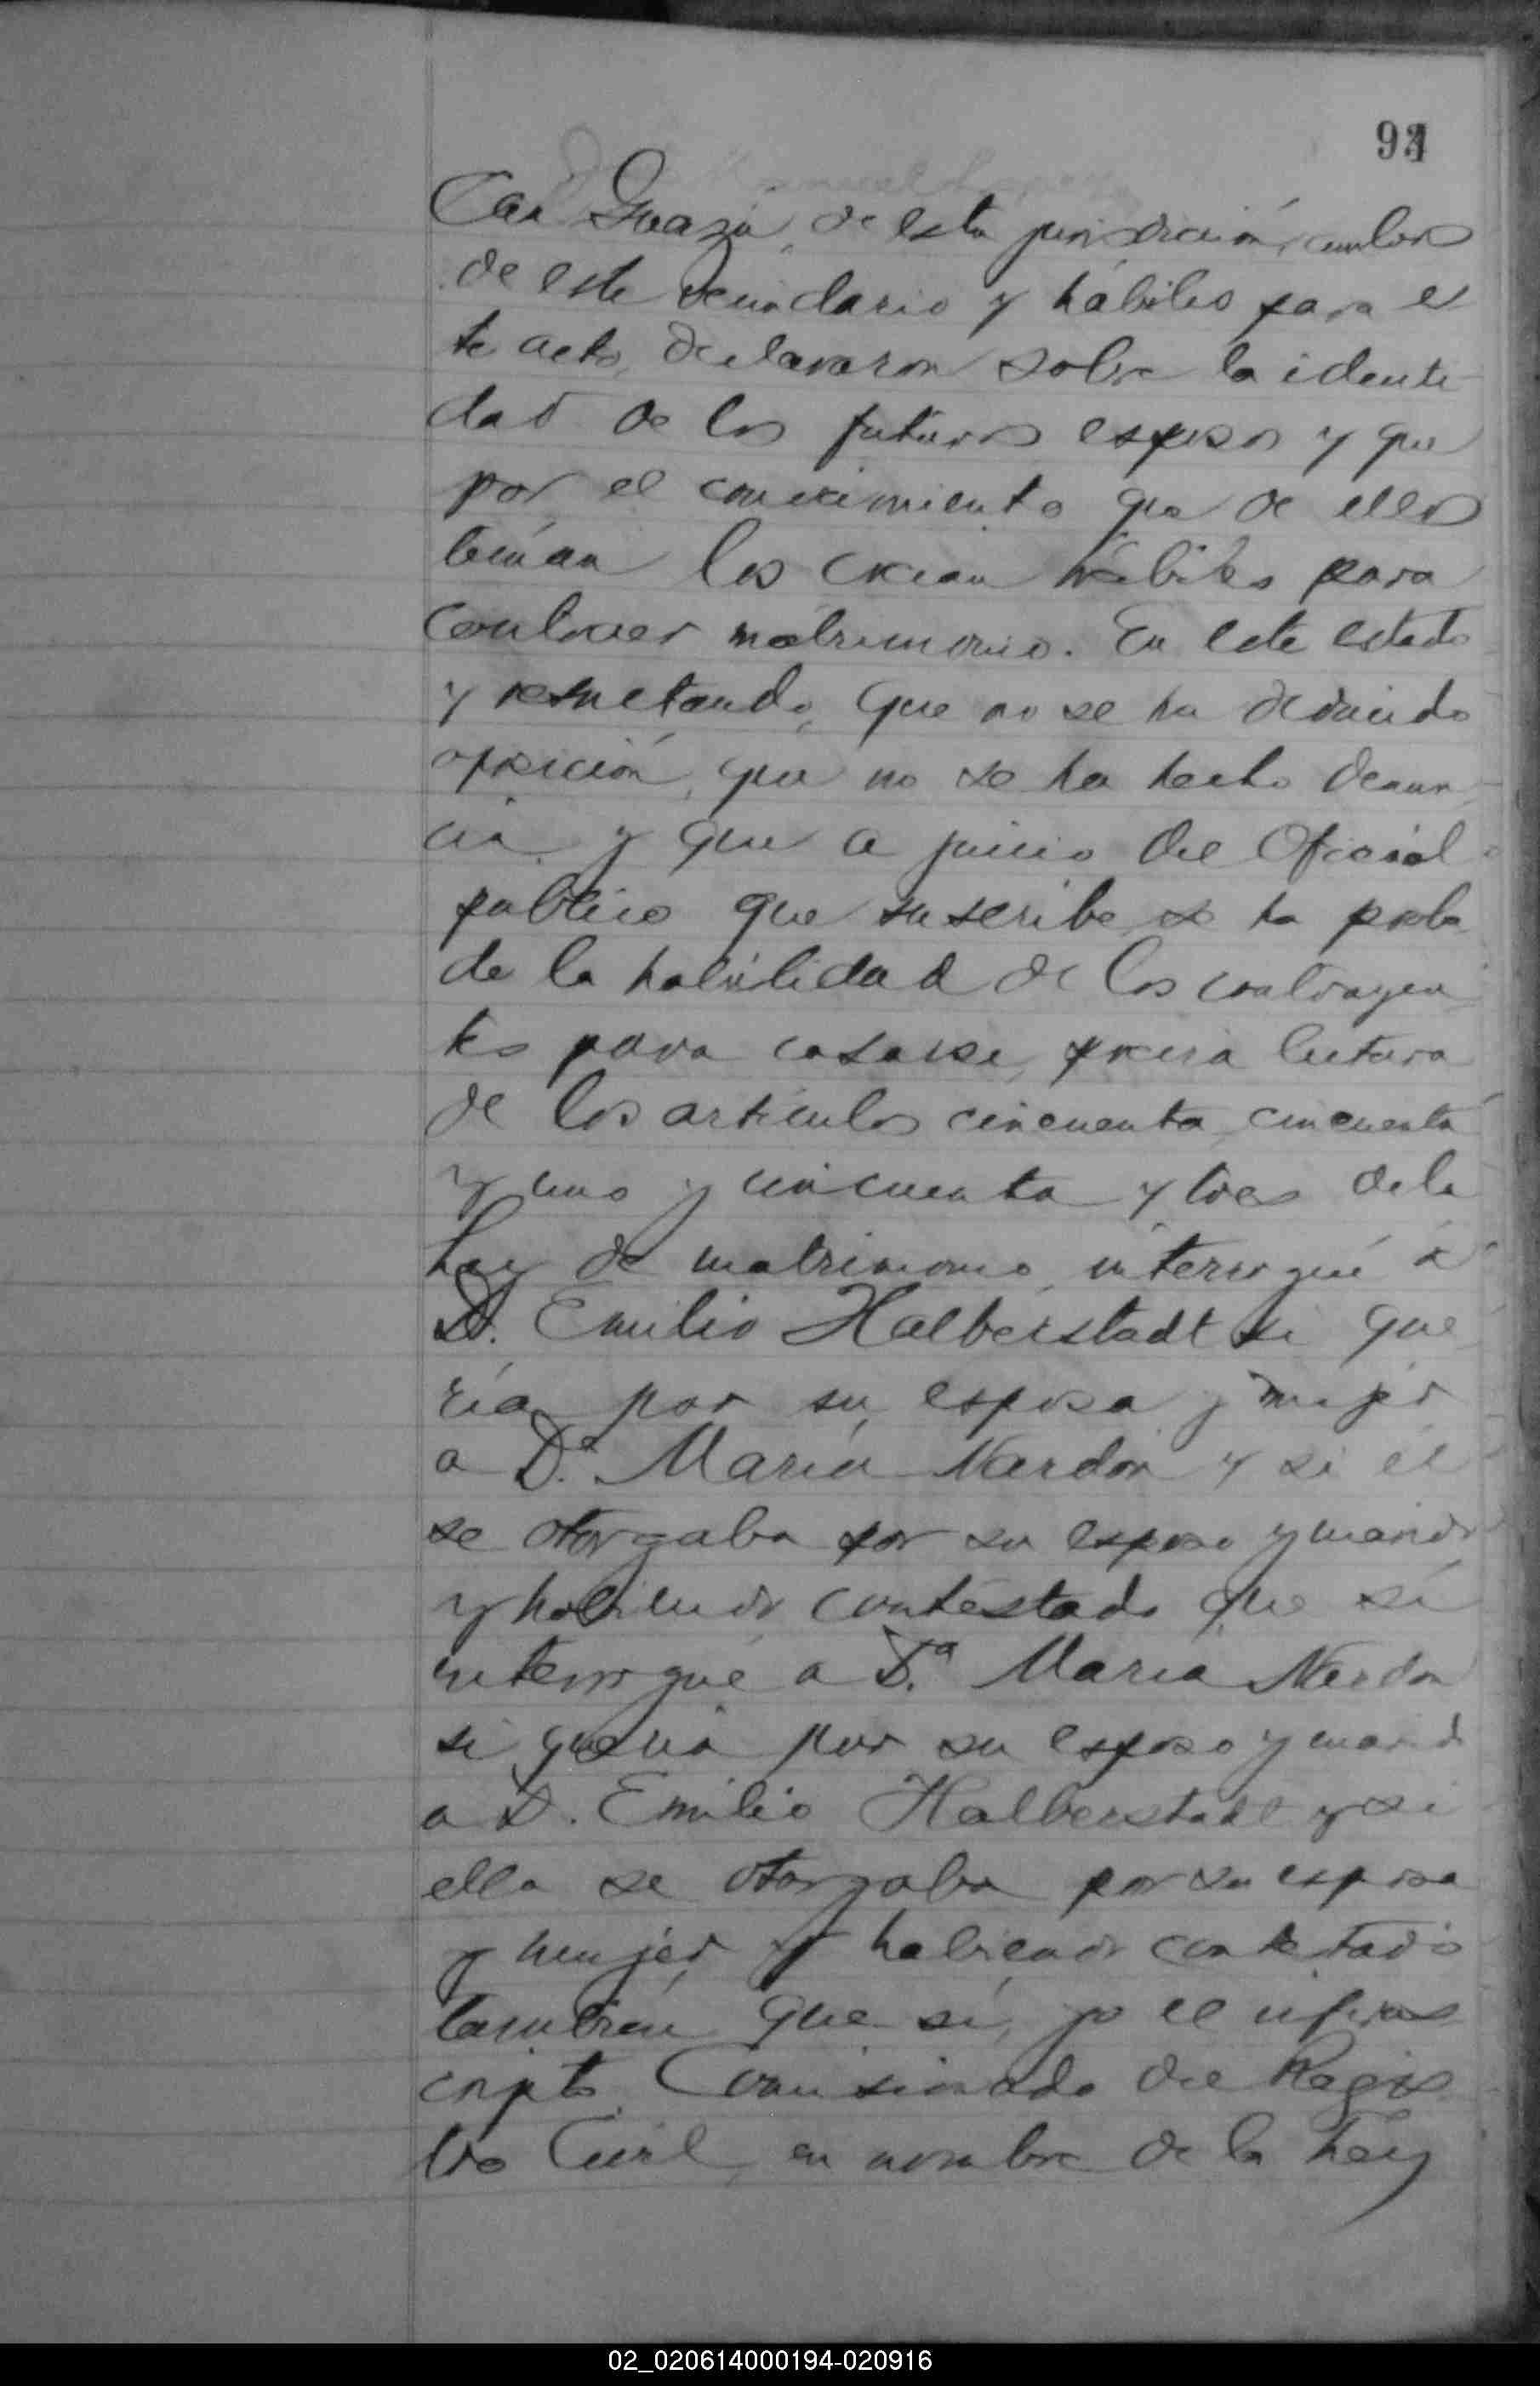 91
Caá Guazú, de esta jurisdición, ambos
de este vecindario y hábiles para es
te acto, declararon sobre la identi
dad de los futuros esposos y que
por el conocimiento que de ellos
tenían los creían hábiles para
contraer matrimonio. En este estado
y resultando, que no se ha deducido
oposición, que no se ha hecho denun
cia y que a juicio del Oficial
público que suscribe se ha proba
do la habilidad de los contrayen
tes para casarse, previa lectura
de los artículos cincuenta, cincuenta
y uno y cincuenta y tres de la
Ley de matrimonio, interrogué á
D. Emilio Halberstadt si que
ría por su esposa y mujer
a D.ª María Nerdon y si él
se otorgaba por su esposo y marido
y habiendo contestado que sí
interrogué a D.ª María Nerdon
si quería por su esposo y marido
a D. Emilio Halberstadt y si
ella se otorgaba por su esposa
y mujer y habiendo contestado
también que sí, yo el infras
cripto Comisionado del Regis
tro Civil, en nombre de la Ley
02_020614000194-020916